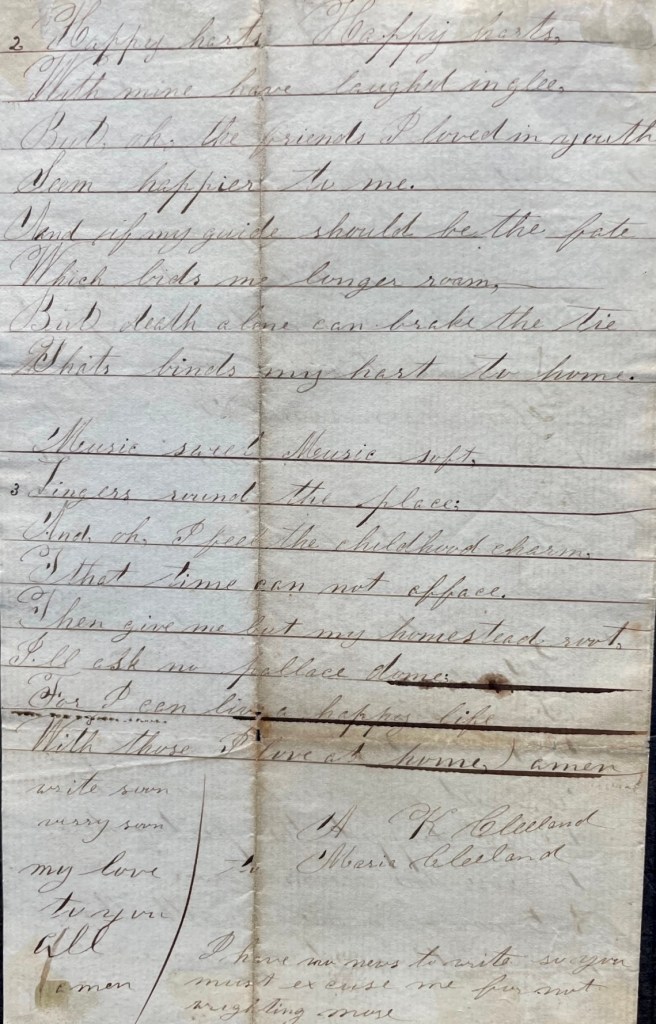 2 Happy harts Happy harts,
With mine have laughed in glee,
But, oh, the friends I loved in youth
Seem happier to me.
And if my guide should be the fate
Which bids me longer roam,
But death alone can brake the tie
Thats binds my hart to home.
Meusic sweet Meusic soft,
3 Lingers round the place;
And, oh, I feel the childhood charm,
That time can not afface.
Then give me but my homestead root,
I'll ask no pallace dome;
For I can live a happy life
With those I love at home, amen
write soon
verry soon
my love
to you
all
amen
A K Cleeland
to Maria Cleeland
I have no news to write so you
must excuse me for not
wrighting more